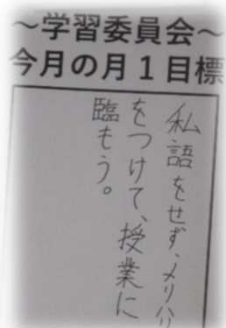 ～学習委員会～
今月の月１目標
私語をせず、メリハリ
をつけて、授業に
臨もう。